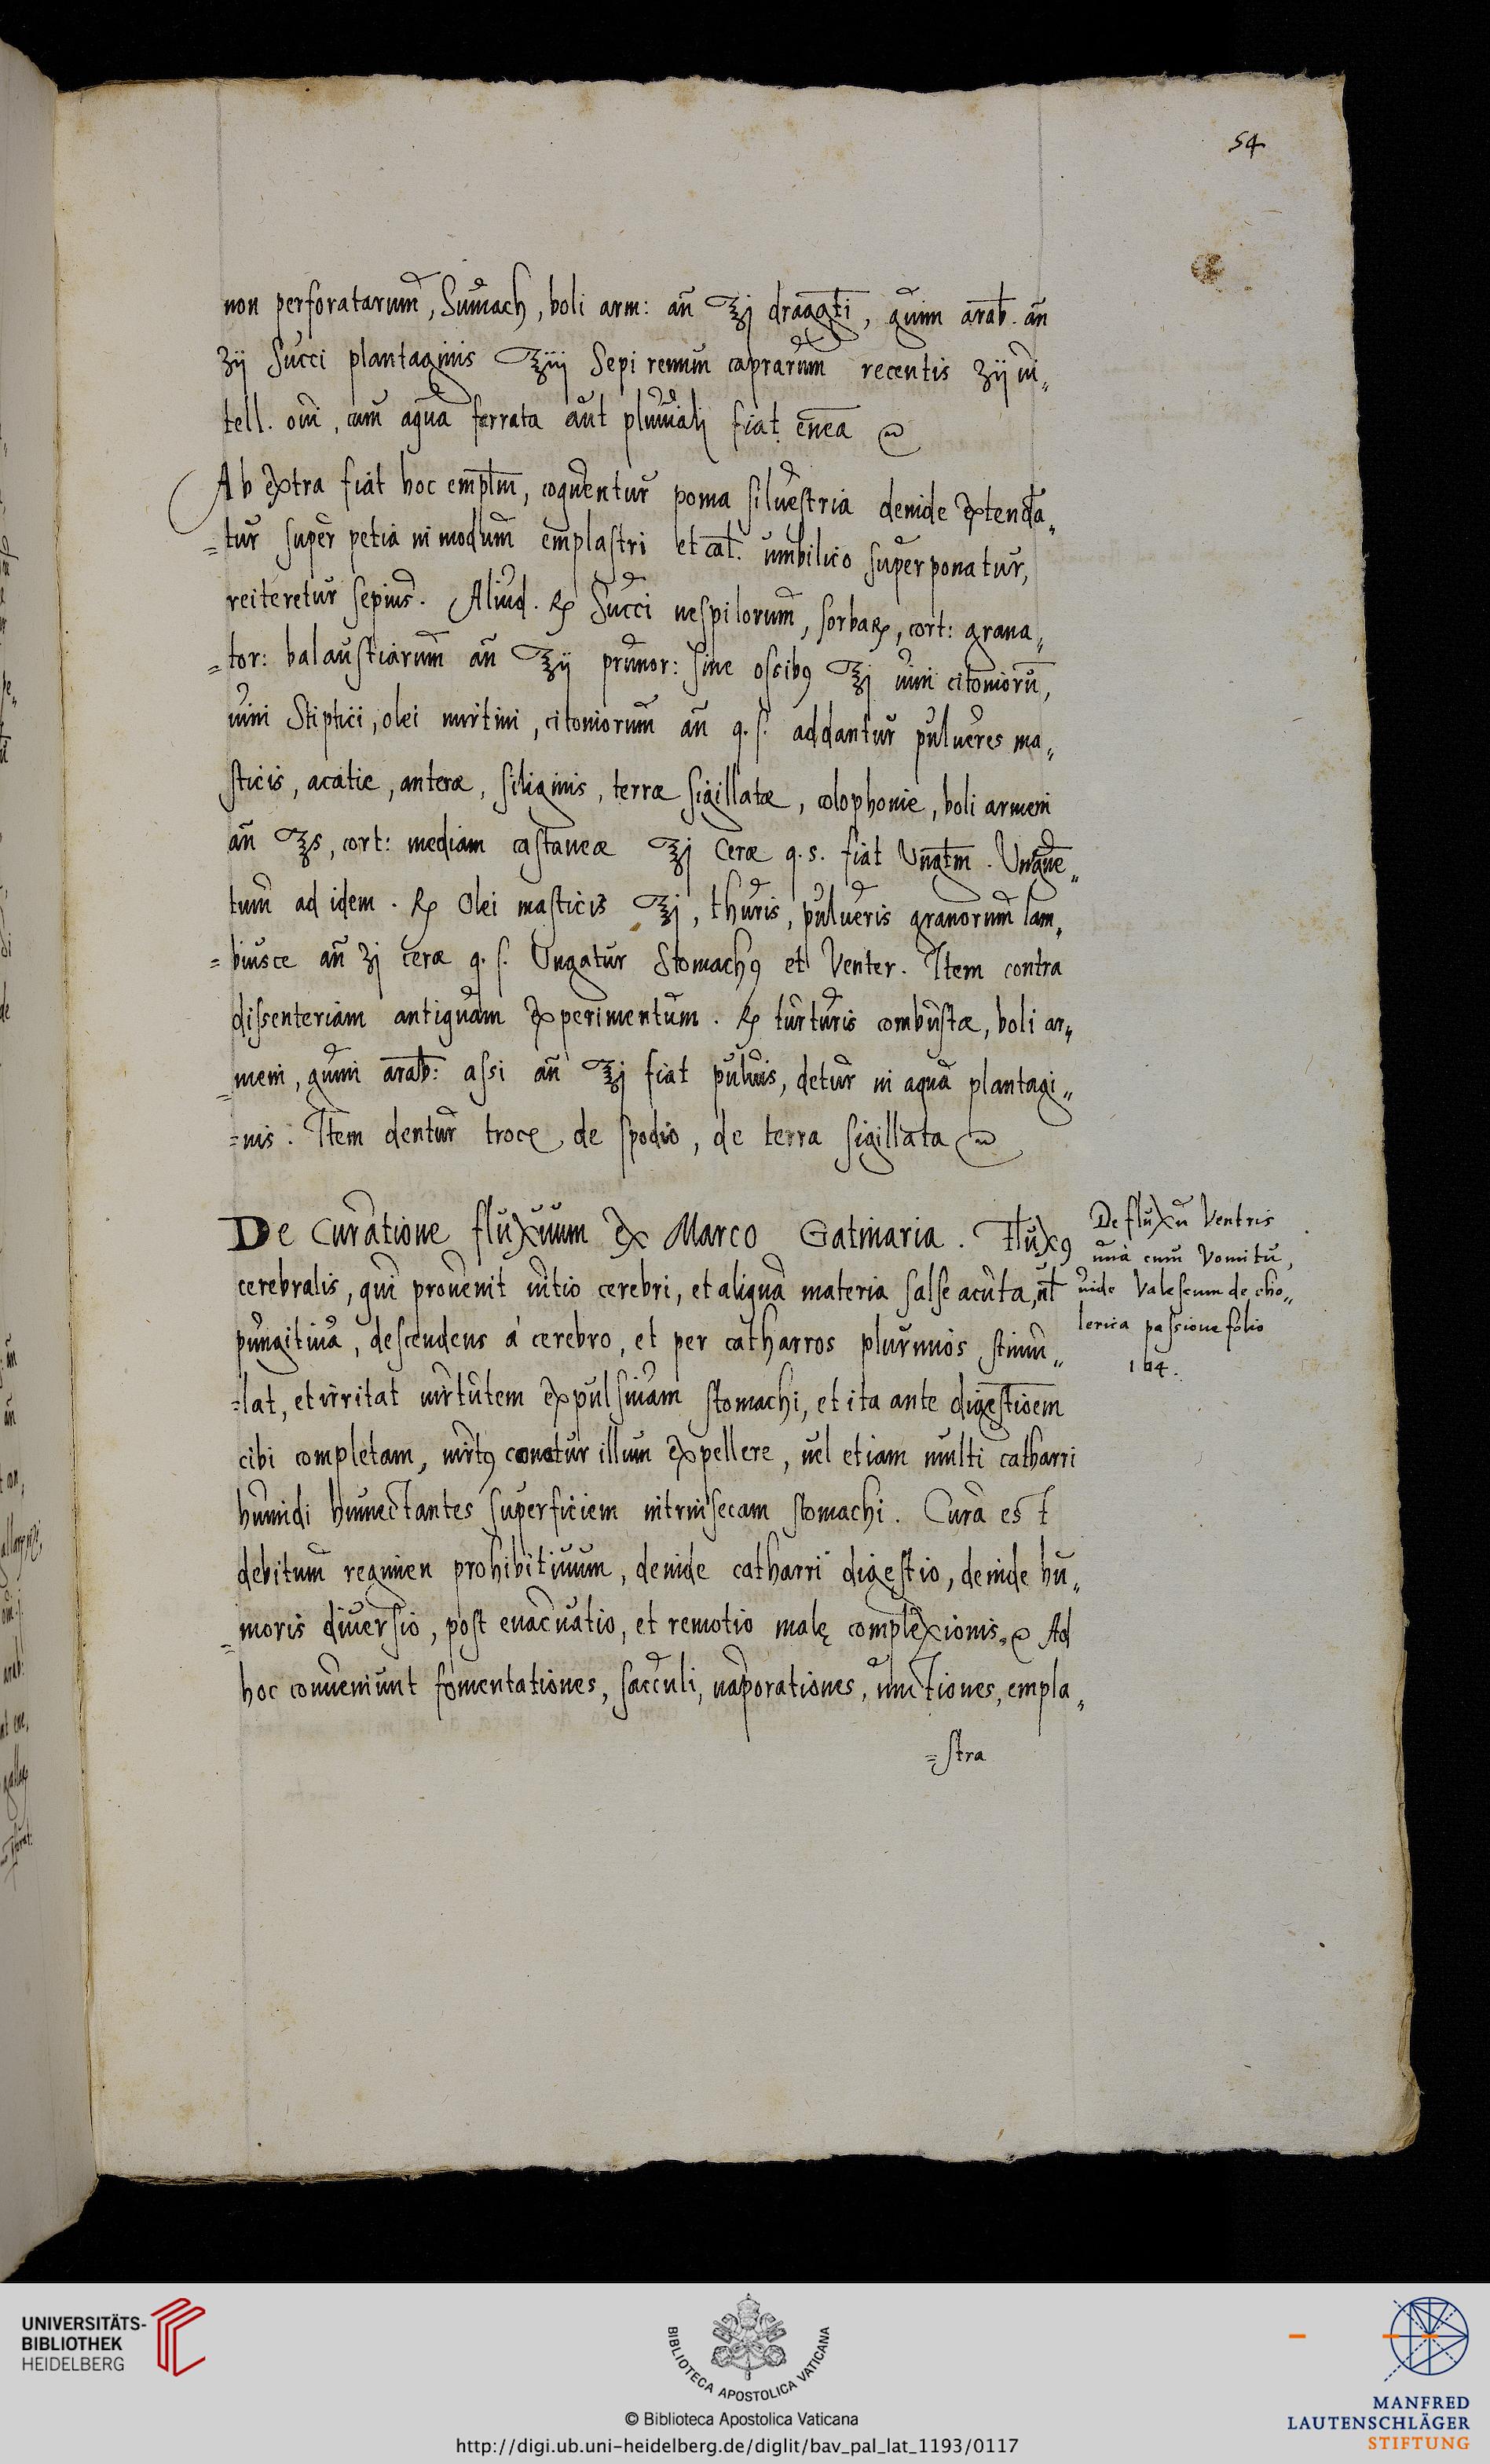 54
non perforatarum, Sumach, boli arm: an ʒj draagti, gum arab. an
ʒij Succi plantaginis ʒiij Sepi renum caprarum recentis ʒij vi„
tell. oui, cum aqua ferrata aut pluuiali fiat enea
Ab extra fiat hoc empltm, coquentur poma siluestria deinde extenda„
=tur super petia in modum emplastri et cat. umbilico superponatur,
reiteretur sepius. Aliud. ℞ Succi nespilorum, sorbaꝝ, cort: grana„
=tor: balaustiarum an ʒij prunor: sine ossibꝰ ʒj uini citoniorū,
uini Stiptici, olei mirtini, citoniorum an q.s. addantur pulueres ma„
sticis, acatie, anteræ, siliginis, terræ sigillatæ, colophonie, boli armeni
an ʒs, cort: mediam castaneæ ʒj Ceræ q.s. fiat Ungtm. Unguē„
tum ad idem. ℞ Olei masticis ʒj, thuris, pulueris granorum sam„
=biusce an ʒj ceræ q.s. Ungatur Stomachꝰ et Venter. Item contra
dissenteriam antiquam experimentum. ℞ turturis combustæ, boli ar„
=meni, gumi arab: assi an ʒj fiat puluis, detur in aqua plantagi„
=nis. Item dentur troc de spodio, de terra sigillata
De Curatione fluxuum ex Marco Gatinaria. Fluxꝰ
cerebralis, qui prouenit uitio cerebri, et aliqua materia salse acuta, ut
pungitiua, descendens à cerebro, et per catharros plurimos stimu„
=lat, et irritat uirtutem expulsiuam stomachi, et ita ante digestioem
cibi completam, uirtꝰ conatur illum expellere, uel etiam multi catharri
humidi humectantes superficiem intrinsecam stomachi. Cura est
debitum regimen prohibitiuum, deinde catharri digestio, deinde hu„
=moris diuersio, post euacuatio, et remotio malę complexionis. Ad
hoc conueniunt fomentationes, sacculi, uaporationes, unctiones, empla„
=stra
De fluxu Ventris
una cum Vomitu,
uide Valescum de cho„
lerica passione folio
164.
UNIVERSITÄTS-
BIBLIOTHEK
HEIDELBERG
BIBLIOTECA APOSTOLICA VATICANA
© Biblioteca Apostolica Vaticana
http://digi.ub.uni-heidelberg.de/diglit/bav_pal_lat_1193/0117
MANFRED
LAUTENSCHLÄGER
STIFTUNG